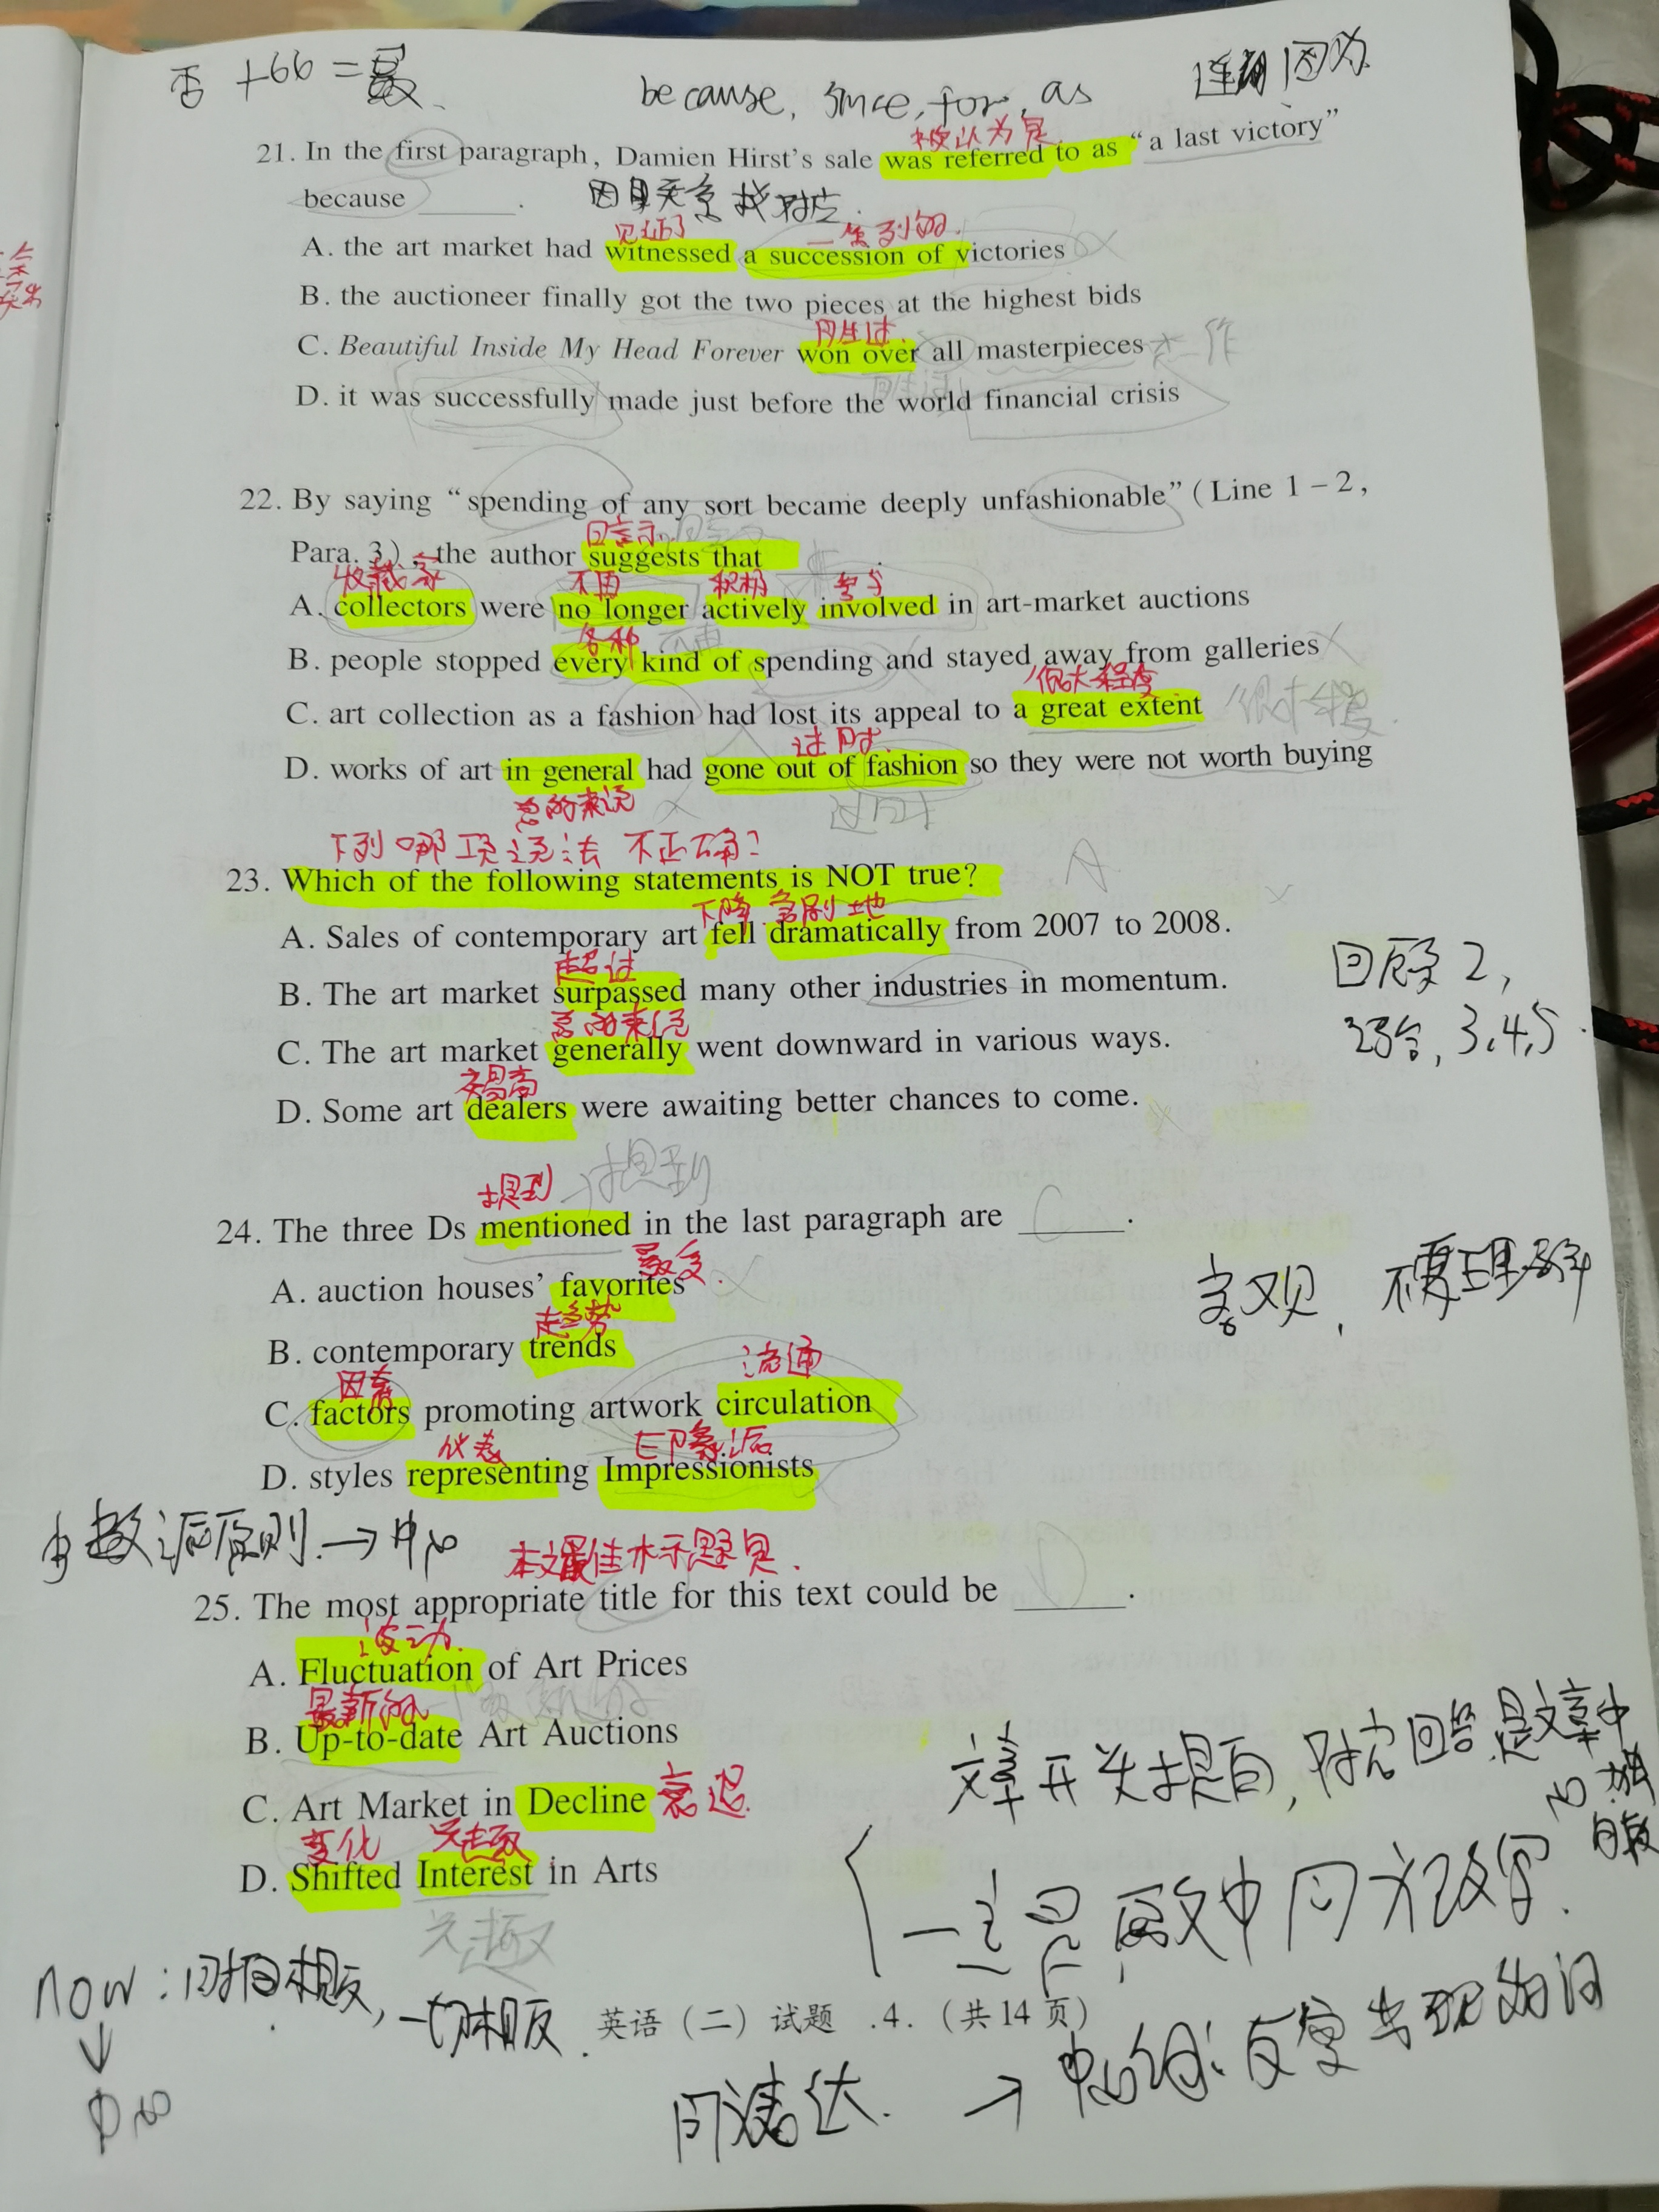 否 +66 =最
because, since, for, as
因为
被认为是
21. In the first paragraph, Damien Hirst's sale was referred to as “a last victory”
because ______.
因果关系 找对应.
见证了 一系列的.
A. the art market had witnessed a succession of victories
B. the auctioneer finally got the two pieces at the highest bids
C. Beautiful Inside My Head Forever won over all masterpieces
D. it was successfully made just before the world financial crisis
22. By saying “spending of any sort became deeply unfashionable” (Line 1-2,
Para. 3), the author suggests that ______.
收藏家 不再 积极 参与
A. collectors were no longer actively involved in art-market auctions
各种
B. people stopped every kind of spending and stayed away from galleries
很大程度
C. art collection as a fashion had lost its appeal to a great extent 很大程度
过时.
D. works of art in general had gone out of fashion so they were not worth buying
总的来说
过时
下列哪项说法 不正确?
23. Which of the following statements is NOT true? A
下降 急剧地
A. Sales of contemporary art fell dramatically from 2007 to 2008.
超过
B. The art market surpassed many other industries in momentum.
总的来说
C. The art market generally went downward in various ways.
交易商
D. Some art dealers were awaiting better chances to come.
回顾 2,
3.4.5.
提到 →提到
24. The three Ds mentioned in the last paragraph are ______. C
A. auction houses' favorites
走势
B. contemporary trends
因素 流通
C. factors promoting artwork circulation
代表 印象派
D. styles representing Impressionists
客观, 不要理解
多数派原则. → 中心
本文最佳标题是.
25. The most appropriate title for this text could be ______. D
波动.
A. Fluctuation of Art Prices
最新的
B. Up-to-date Art Auctions
C. Art Market in Decline 衰退.
变化 兴趣
D. Shifted Interest in Arts
兴趣
文章开头提问, 对应回答是文章中心
一定是原文中同义改写.
now: 时间相反, 一切相反.
↓
中心
英语(二)试题 .4. (共14页)
→ 中心词: 反复出现的词